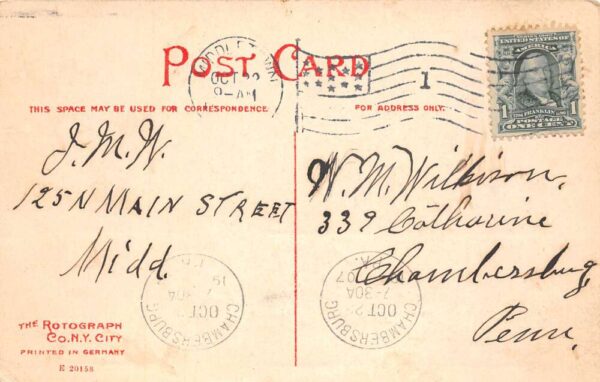 POST CARD
OCT
THIS SPACE MAY BE USED FOR CORRESPONDENCE.
FOR ADDRESS ONLY.
1
UNITED STATES OF
AMERICA
1 FRANKLIN 1
POSTAGE
ONE CENT
J. M. W.
125 N MAIN STREET
Midd.
W. M. Wilkison,
339 Catharine
Chambersburg,
Penn,
CHAMBERSBURG
OCT
19
CHAMBERSBURG
OCT
7-30A
07
PA.
THE ROTOGRAPH
CO. N.Y. CITY
PRINTED IN GERMANY
E 20158